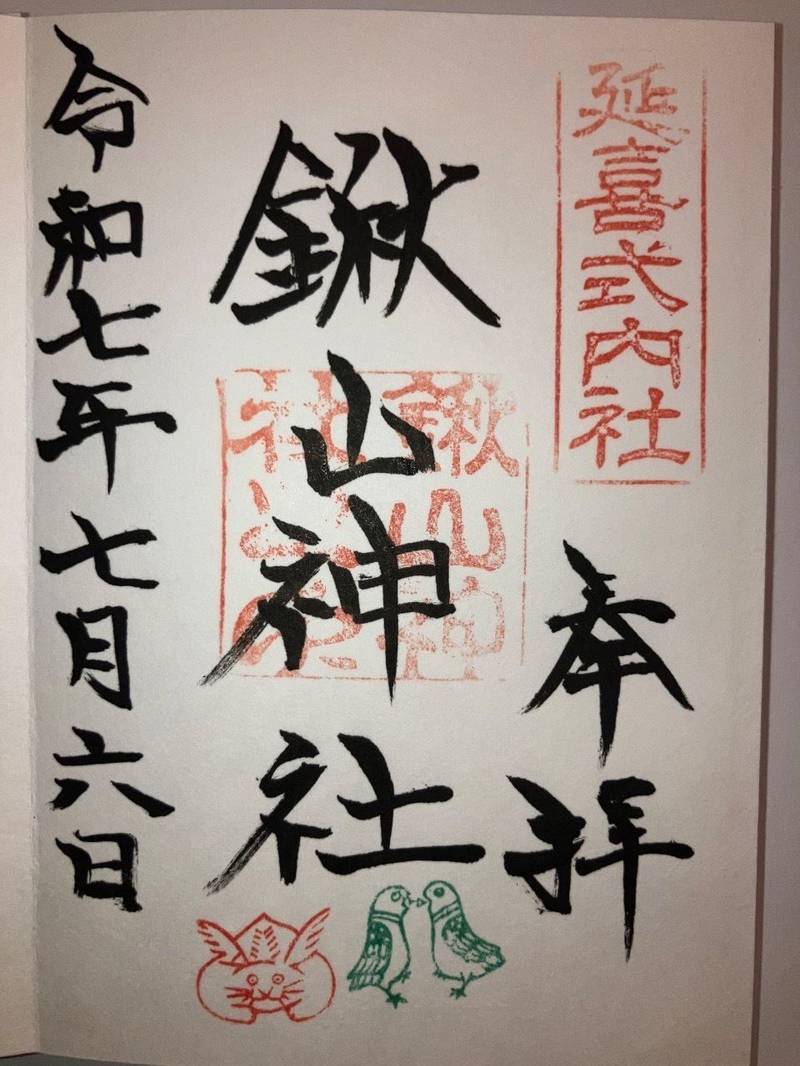 延喜式内社
奉拝
鍬山神社
鍬山神
社之印
令和七年七月六日